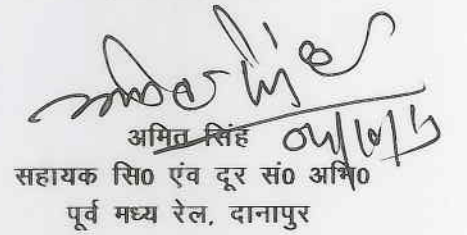 अमित सिंह
सहायक सि0 एंव दूर सं0 अभि0
पूर्व मध्य रेल, दानापुर